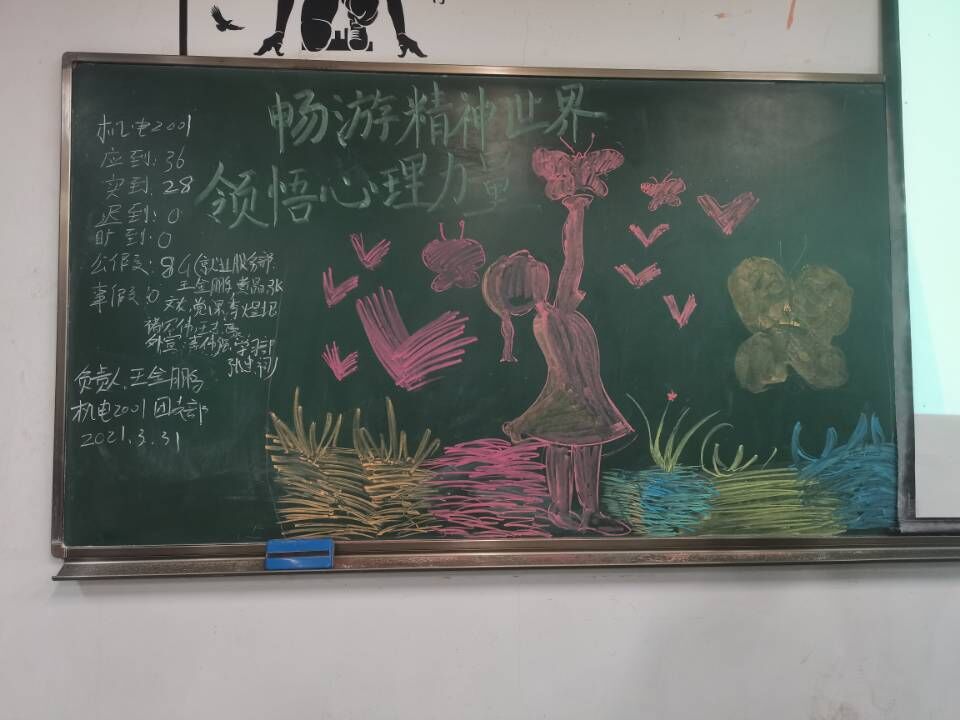 畅游精神世界
领悟心理力量
机电2001
应到:36
实到:28
迟到:0
旷到:0
公假:8(就业服务部:
王金鹏,黄晶,张
事假:0
负责人:王金鹏
机电2001团支部
2021.3.31